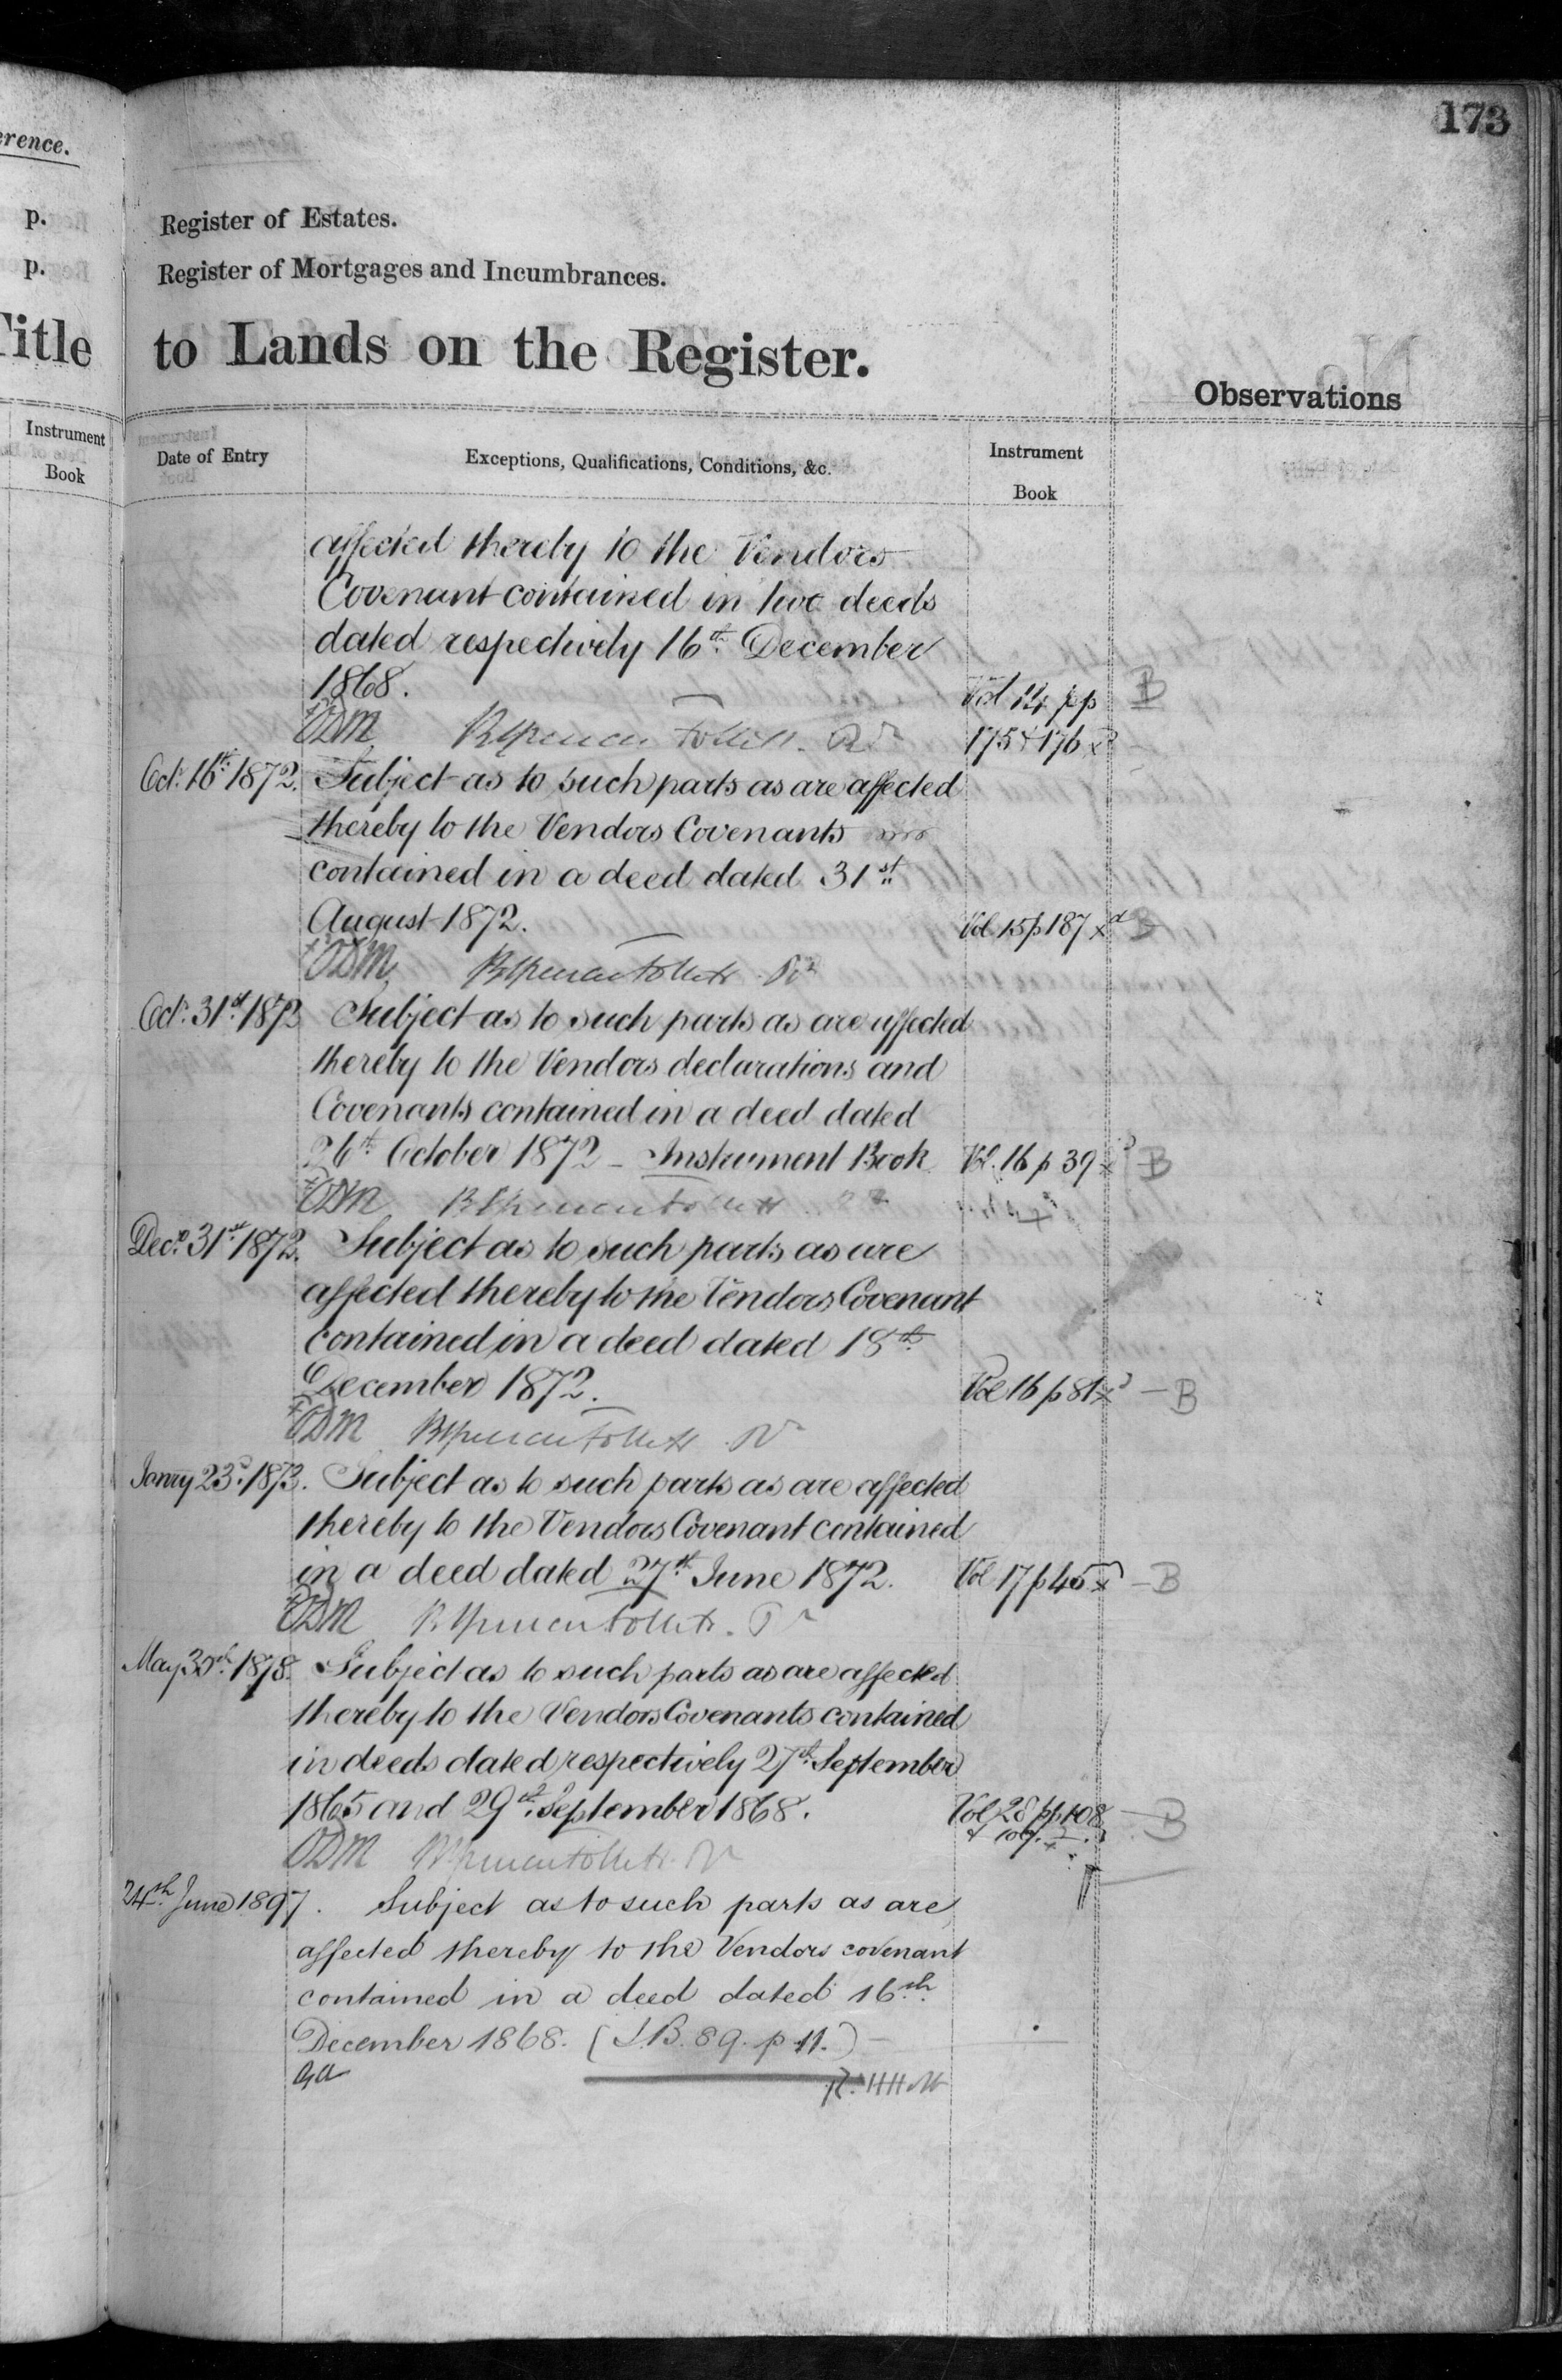 173
erence.
p.
Register of Estates.
p.
Register of Mortgages and Incumbrances.
Title to Lands on the Register.
Observations
Instrument
Book
Date of Entry
Exceptions, Qualifications, Conditions, &c.
Instrument
Book
affected thereby to the Vendors
Covenant contained in two deeds
dated respectively 16th December
1868. Vol 14 pp B
ODM 175 & 176 x
Oct. 16th 1872. Subject as to such parts as are affected
thereby to the Vendors Covenants
contained in a deed dated 31st
August 1872. Vol 15 p 187 x B
ODM
Oct. 31st 1872 Subject as to such parts as are affected
thereby to the Vendors declarations and
Covenants contained in a deed dated
26th October 1872 - Instrument Book Vol. 16 p 39 x B
ODM
Decr. 31st 1872. Subject as to such parts as are
affected thereby to the Vendors Covenant
contained in a deed dated 18th
December 1872. Vol 16 p 81 x - B
ODM
Janry 23d. 1873. Subject as to such parts as are affected
thereby to the Vendors Covenant contained
in a deed dated 27th June 1872. Vol 17 p 45 x - B
ODM
May 30th 1878. Subject as to such parts as are affected
thereby to the Vendors Covenants contained
in deeds dated respectively 27th September
1865 and 29th September 1868. Vol 28 pp 108 - B
& 109.
ODM
24th June 1897. Subject as to such parts as are
affected thereby to the Vendors covenant
contained in a deed dated 16th
December 1868. (I.B. 89. p 11.)